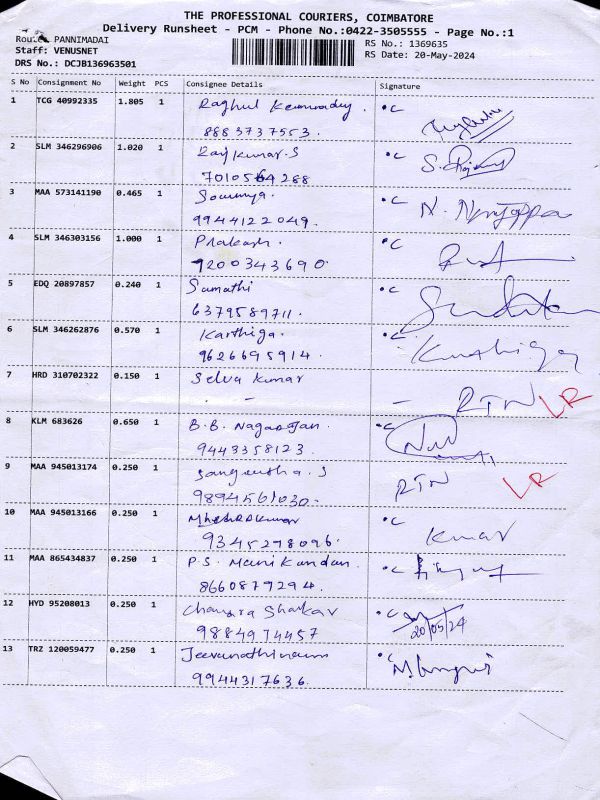 THE PROFESSIONAL COURIERS, COIMBATORE
Delivery Runsheet - PCM - Phone No.:0422-3505555 - Page No.:1
Route: PANNIMADAI
RS No.: 1369635
Staff: VENUSNET
RS Date: 20-May-2024
DRS No.: DCJB136963501
S No Consignment No Weight PCS Consignee Details Signature
1 TCG 40992335 1.805 1 Raghul °C
8883737553.
2 SLM 346296906 1.020 1 Rajkumar.S °C
7010564288
3 MAA 573141190 0.465 1 Sowmya. °C N. Nanjappa
9944122049.
4 SLM 346303156 1.000 1 Prakash. °C
9200343690.
5 EDQ 20897857 0.240 1 Sumathi °C
6379589711.
6 SLM 346262876 0.570 1 Karthiga. °C Karthiga
9626695914.
7 HRD 310702322 0.150 1 Selva Kumar
- - - RTN LR
8 KLM 683626 0.650 1 B.B. Nagarajan. °C
9443358123.
9 MAA 945013174 0.250 1 Sangeetha.S RTN LR
9894561030.
10 MAA 945013166 0.250 1 °C Kumar
9345278096.
11 MAA 865434837 0.250 1 P.S. Manikandan. °C
8660879294.
12 HYD 95208013 0.250 1 Chandra Shakar °C
9884974457 20/05/24
13 TRZ 120059477 0.250 1 °C
9944317636.